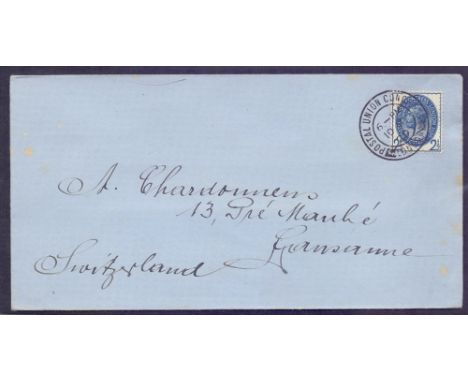 POSTAL UNION CONG
2½
A. Chardonnens
13, Pré Marché
Lausanne
Switzerland